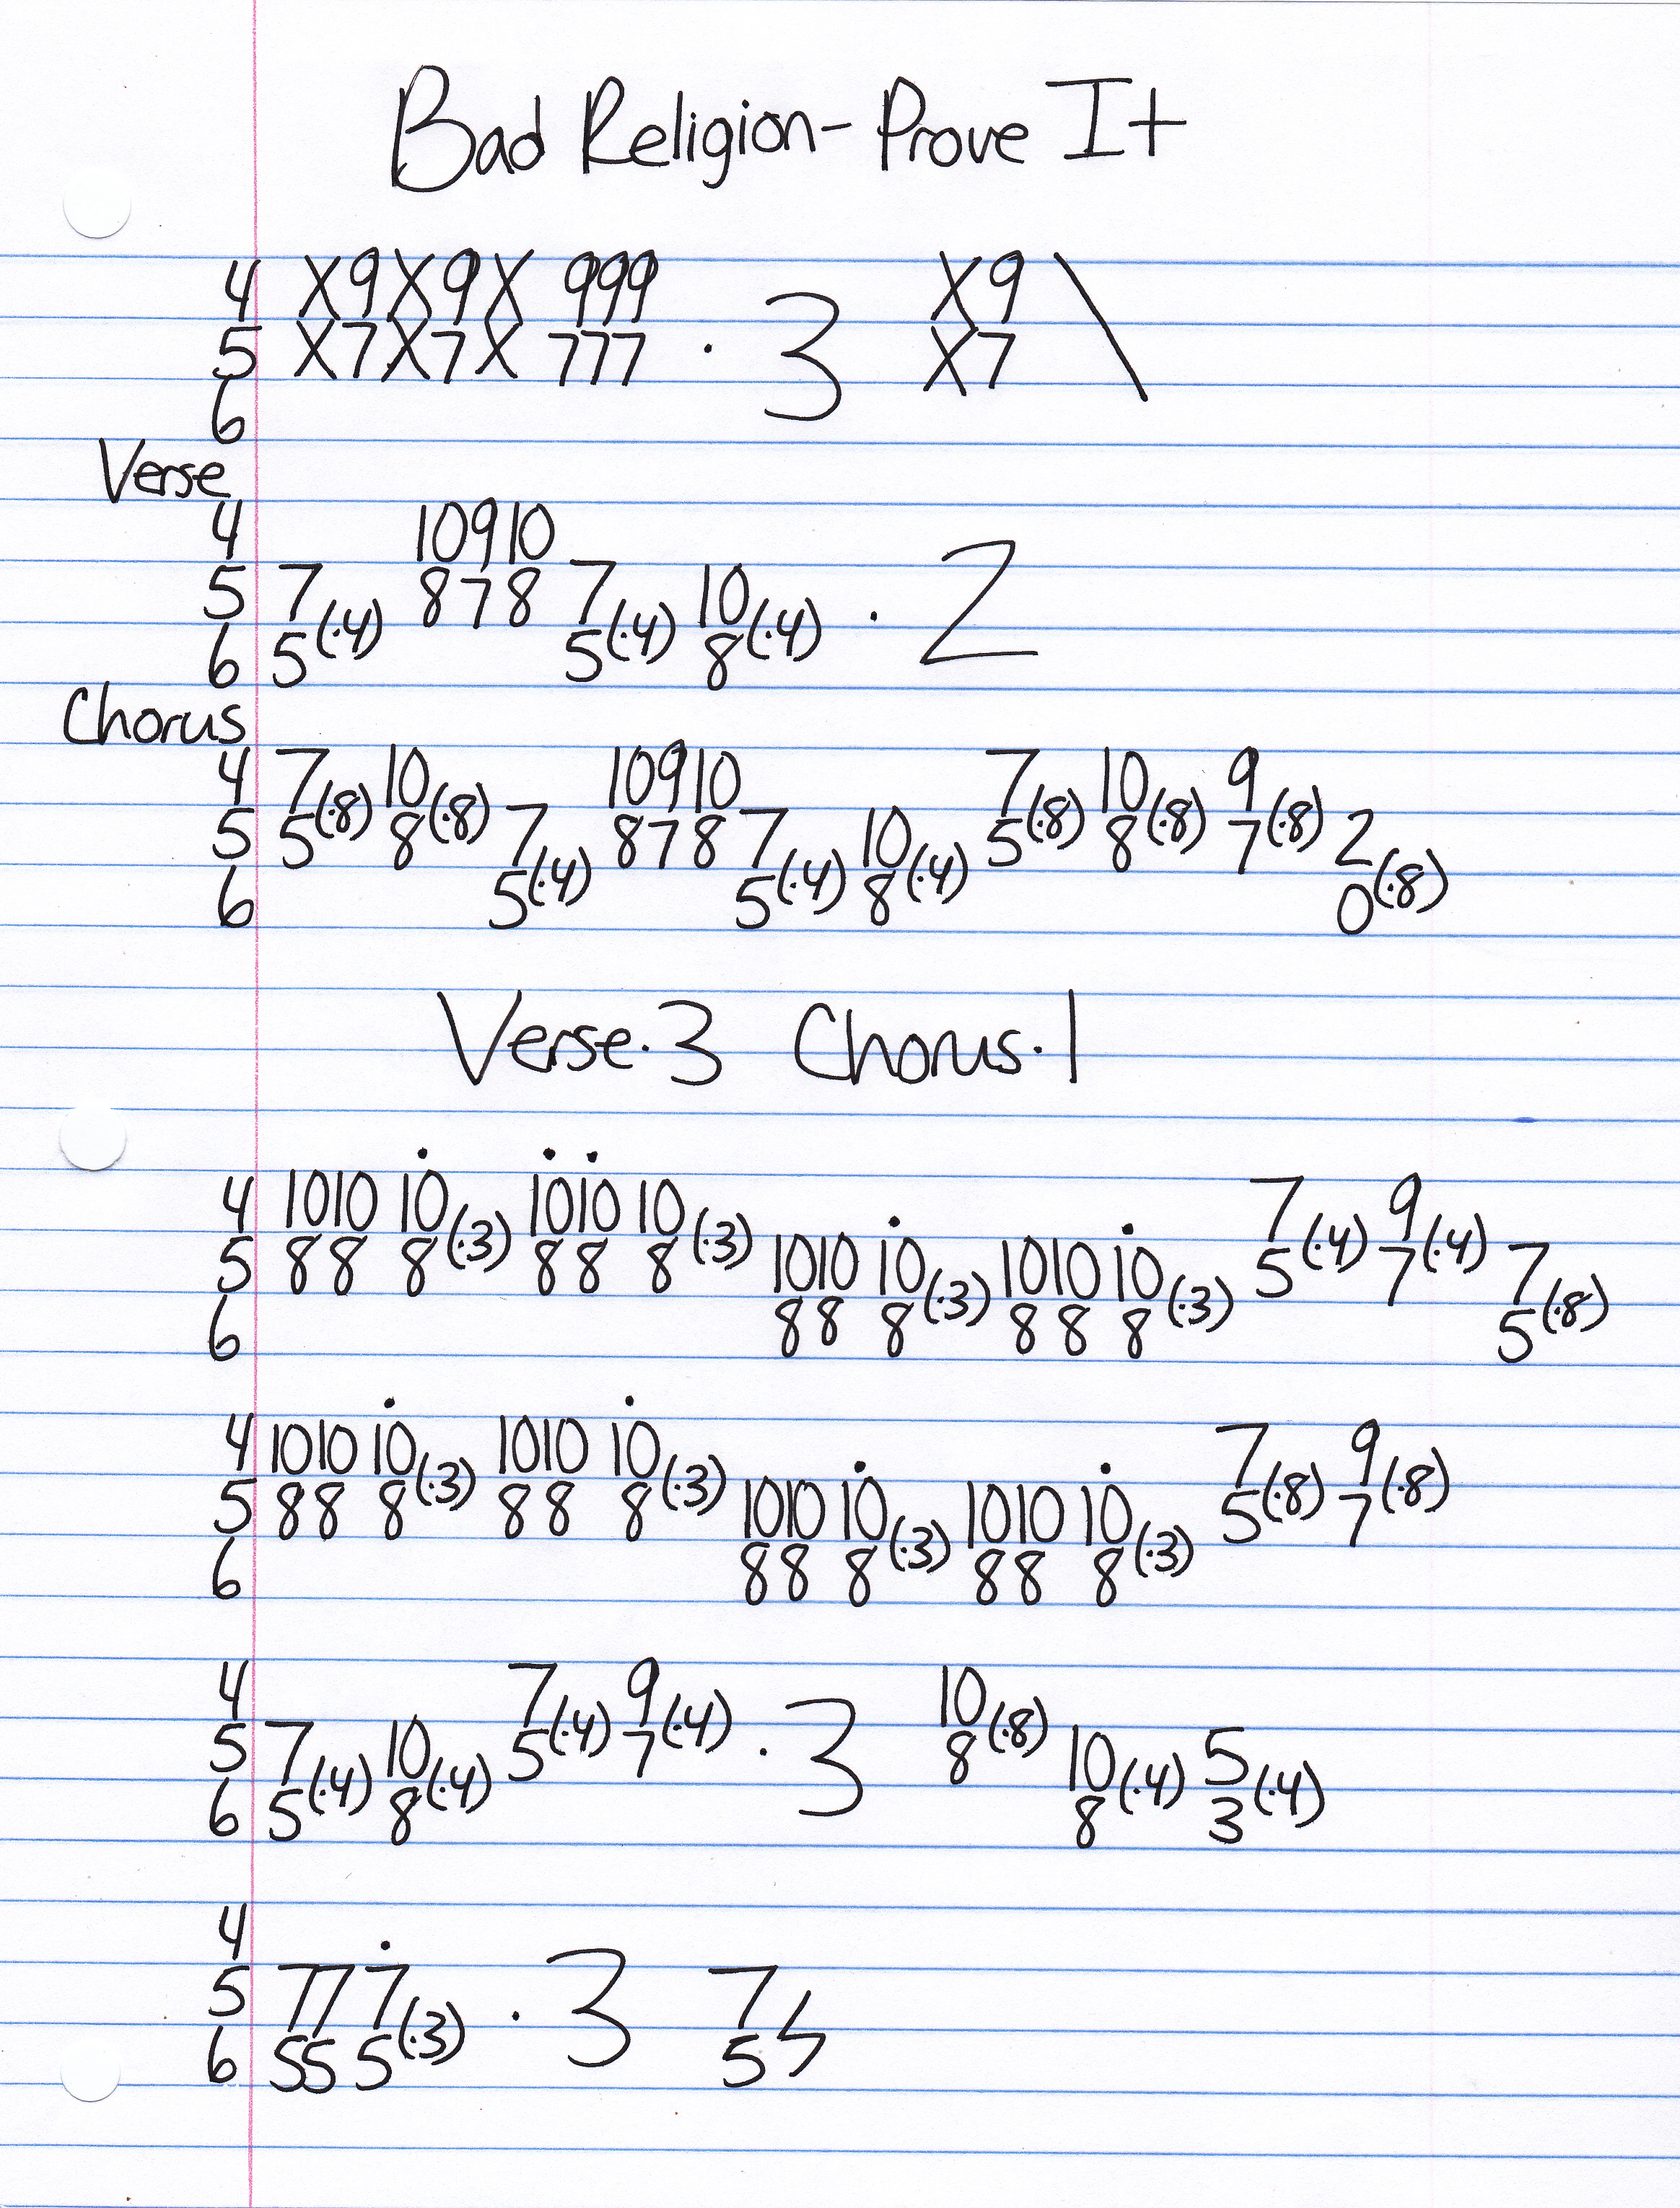 Bad Religion- Prove It
4 X9X9X 999 X9 \
5 X7X7X 777 · 3 X7
6
Verse
4 10910
5 7(·4) 878 7(·4) 10(·4) · 2
6 5 5 8
Chorus
4 7(·8) 10(·8) 10910 7(·8) 10(·8) 9(·8)
5 5 8 7(·4) 878 7(·4) 10(·4) 5 8 7 2(·8)
6 5 5 8 0
Verse·3 Chorus·1
4 1010 10(·3) 1010 10(·3) 7(·4) 9(·4)
5 88 8 88 8 1010 10(·3) 1010 10(·3) 5 7 7(·8)
6 88 8 88 8 5
4 1010 10(·3) 1010 10(·3) 7(·8) 9(·8)
5 88 8 88 8 1010 10(·3) 1010 10(·3) 5 7
6 88 8 88 8
4 7(·4) 9(·4) 10(·8)
5 7(·4) 10(·4) 5 7 · 3 8 10(·4) 5(·4)
6 5 8 8 3
4
5 77 7(·3) · 3 7
6 55 5 5